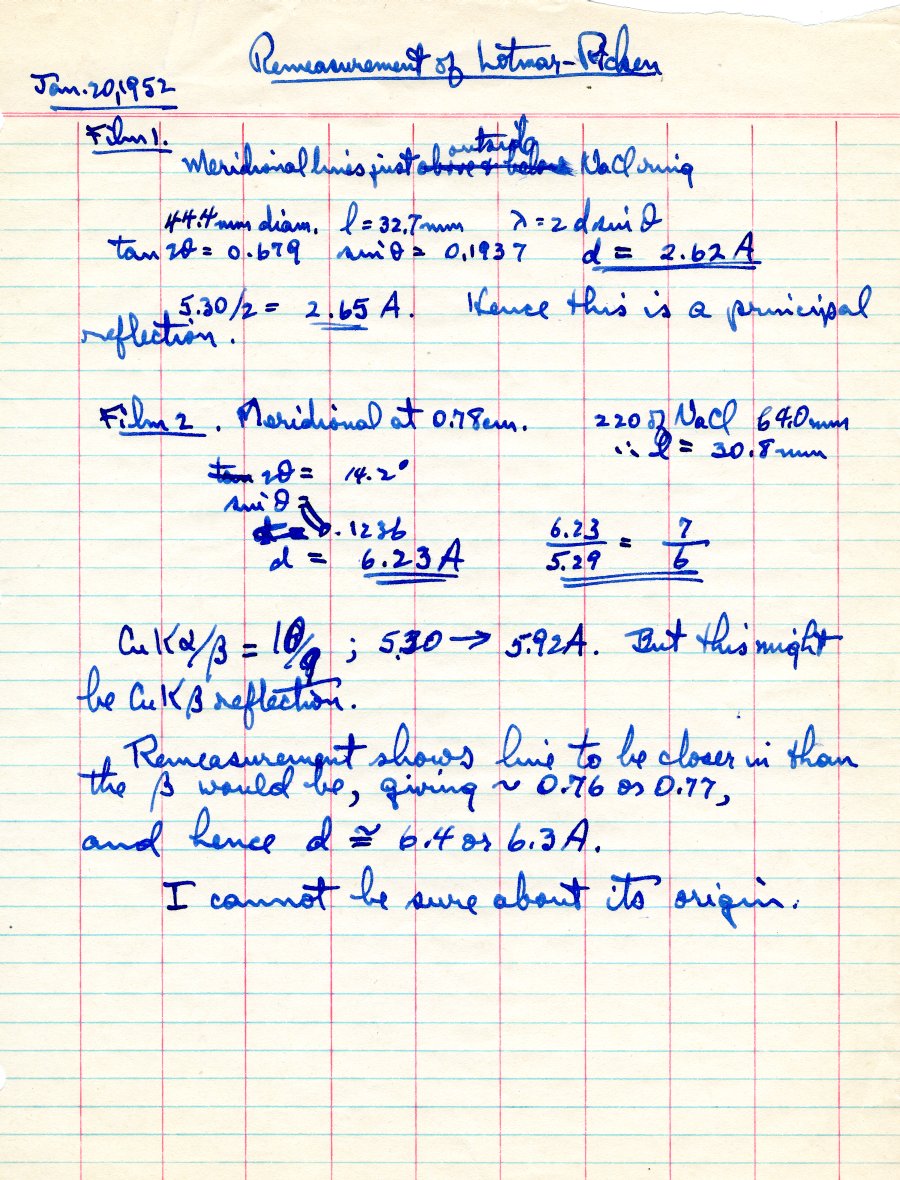 Remeasurement of Lotmar-Picken
Jan. 20, 1952
Film 1.
outside
Meridional lines just above & below NaCl ring
44.4 mm diam. l = 32.7 mm λ = 2 d sin θ
tan 2θ = 0.679 sin θ = 0.1937 d = 2.62 A
5.30/2 = 2.65 A. Hence this is a principal
reflection.
Film 2. Meridional at 0.78 cm. 220 of NaCl 64.0 mm
∴ l = 30.8 mm
tan 2θ = 14.2°
sin θ =
d = 0.1236
d = 6.23 A 6.23/5.29 = 7/6
Cu Kα/β = 10/9 ; 5.30 → 5.92 A. But this might
be Cu K β reflection.
Remeasurement shows line to be closer in than
the β would be, giving ~ 0.76 or 0.77,
and hence d ≅ 6.4 or 6.3 A.
I cannot be sure about its origin.